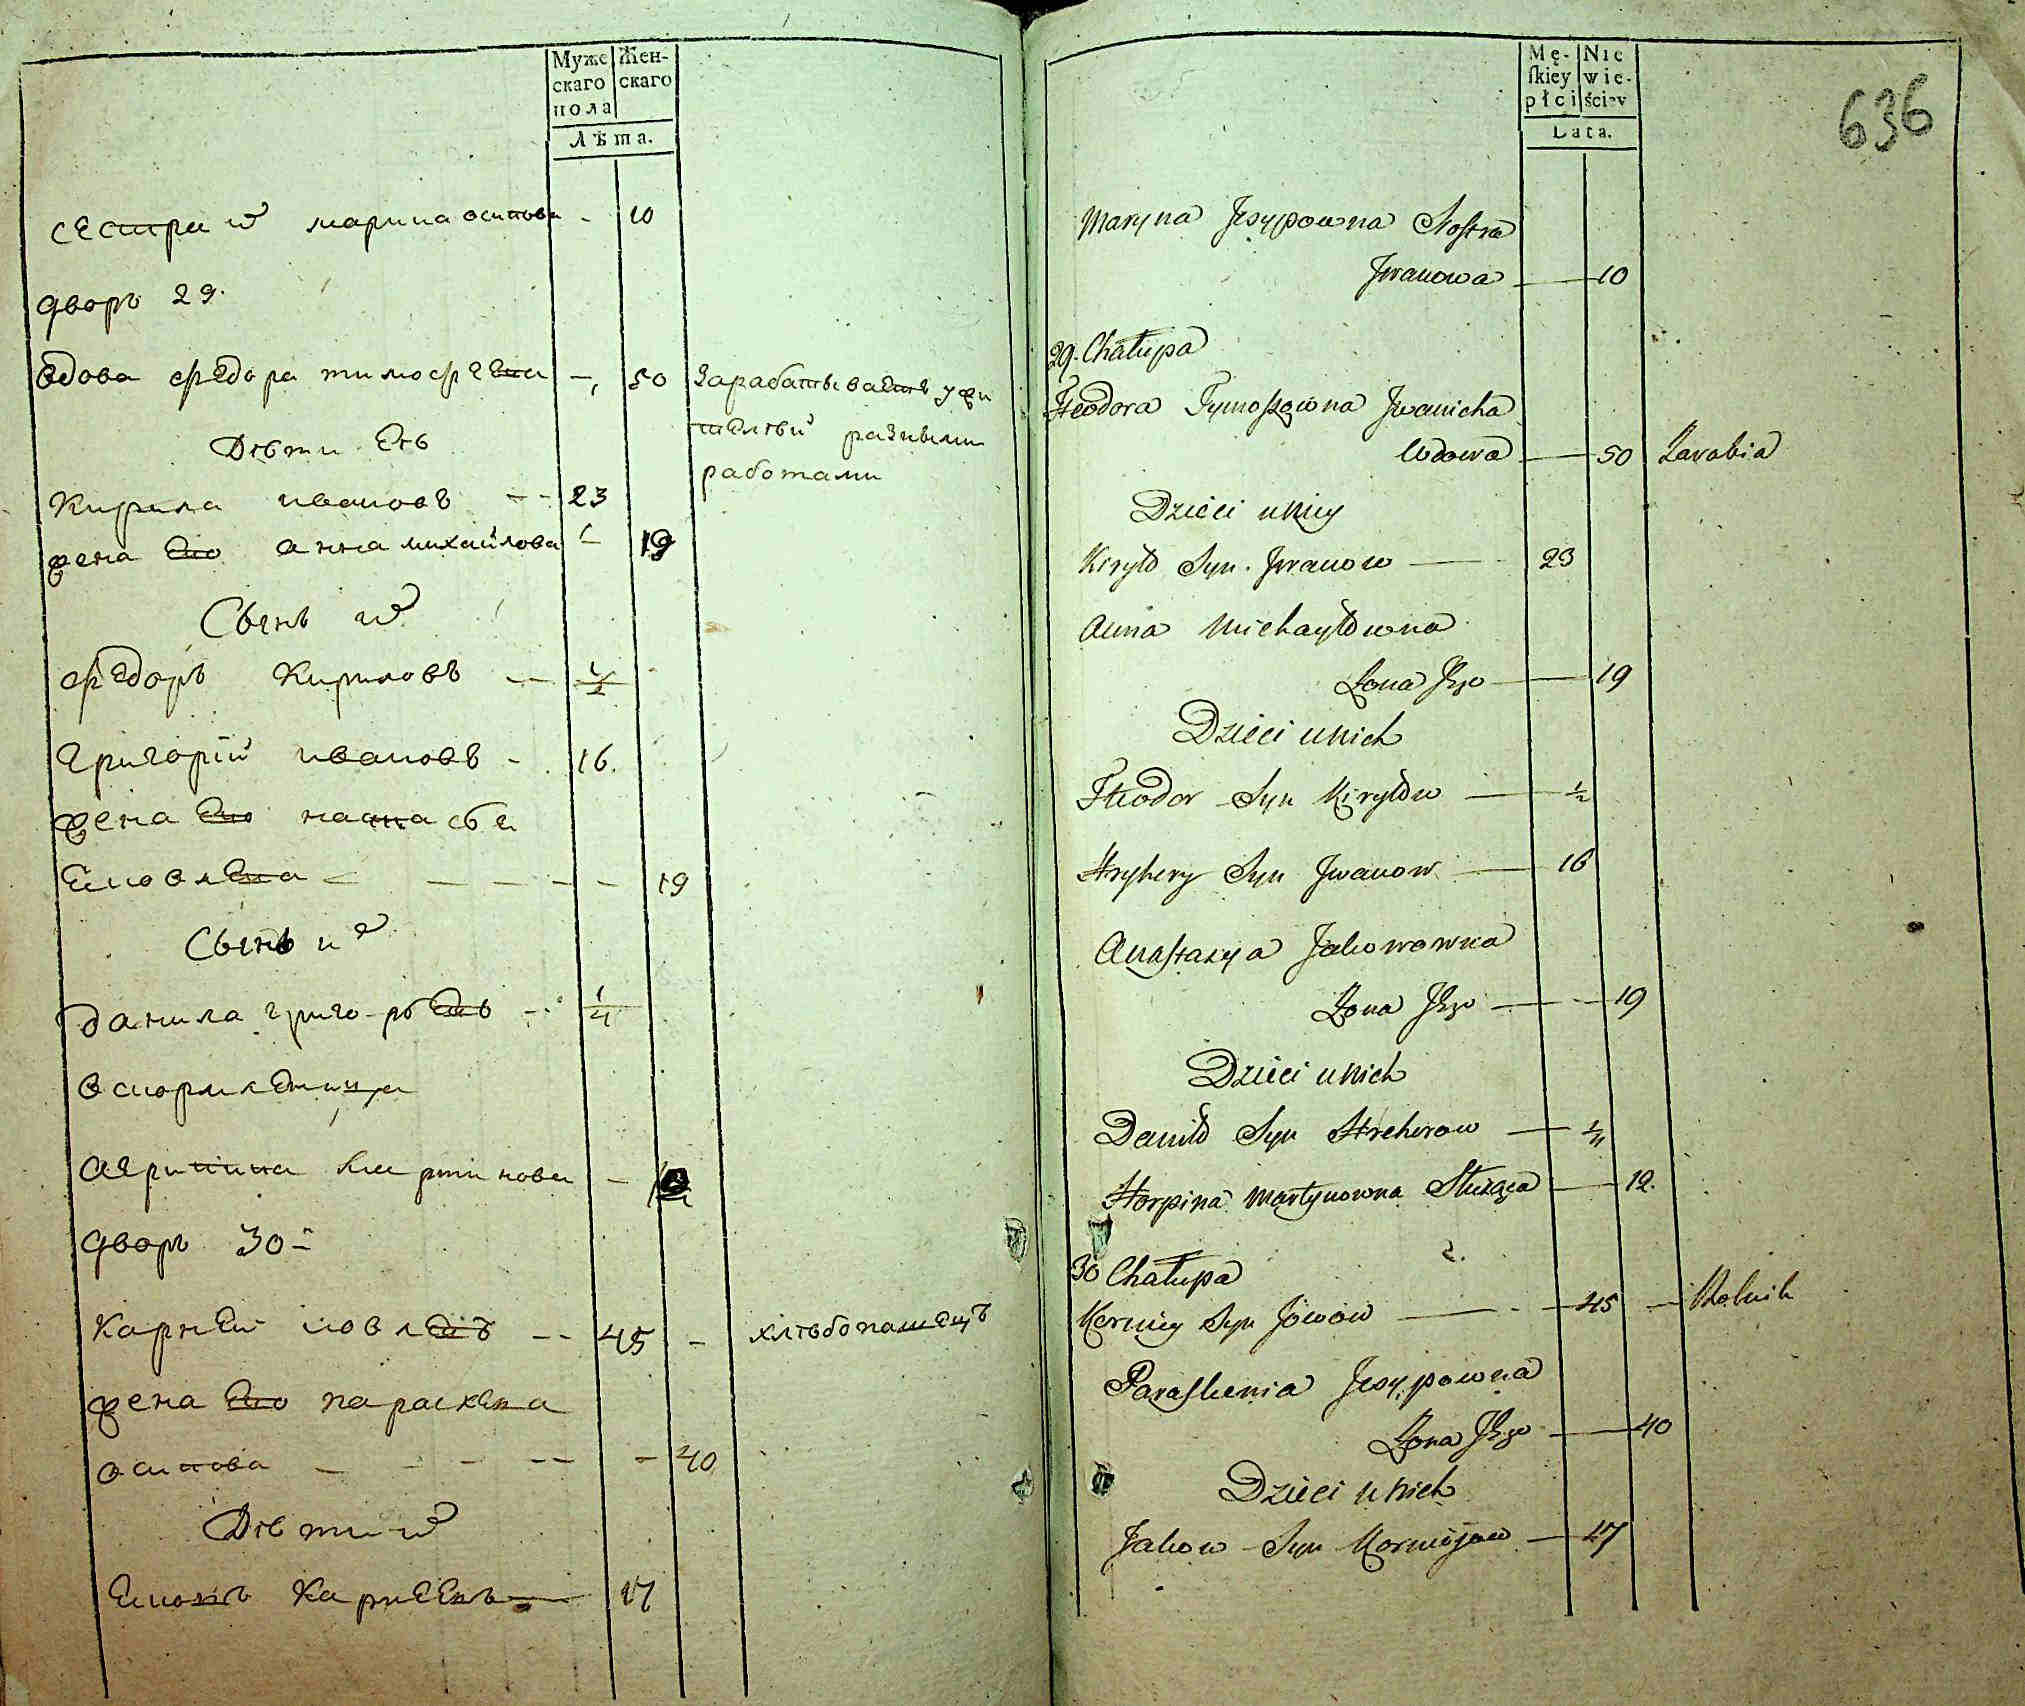 Муже
скаго
пола
Жен-
скаго
Лѣта.
сестра и҃ марина осипова - 10
дворъ 29.
вдова федора тимофеева - 50 Зарабатываетъ у жи
телѣй разными
работами
Дѣти Еѣ
Кирила ивановъ -- 23
жена Его анна михайлова - 19
Сынъ и҃
федоръ Кириловъ -- 1/2
григорiй ивановъ - 16.
жена Его настасья
Яковлева - - - - - 19
Сынъ и҃
данила григорьевъ -- 1/4
воспормленица
агрипина мартинова -
дворъ 30-
Карней иовлевъ -- 45 - хлѣбопашецъ
жена Его параскева
осипова - - - - - 40
Дѣти и҃
Яковъ Карнеевъ — 17
Mę-
skiey
płci
Nie
wie-
ściey
Lata.
636
Maryna Jesypowna Siostra
Jwanowa — 10
29. Chałupa
Fteodora Tymoszowna Jwanicha
Wdowa — 50 Zarabia
Dzieci u Niey
Kiryło Syn Jwanow — 23
Anna Michayłowna
Żona Jego — 19
Dzieci u Nich
Fteodor Syn Kiryłow — 1/2
Hryhery Syn Jwanow — 16
Anastazya Jakowowna
Żona Jego — 19
Dzieci u Nich
Daniło Syn Hrehorow — 1/4
Horpina Martynowna Służąca — 12.
30 Chałupa
Korniey Syn Jowow — 45 — Rolnik
Paraskewia Jesypowna
Żona Jego — 40
Dzieci u Nich
Jakow Syn Korniejow — 17